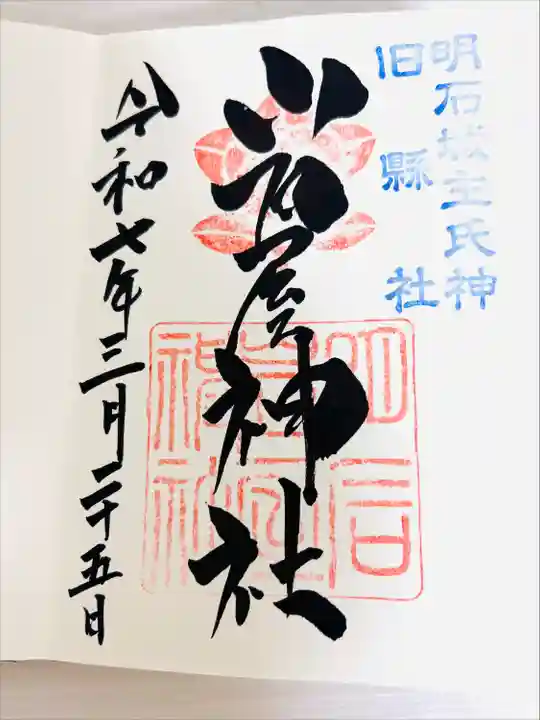 明石城主氏神
旧縣社
岩屋神社
令和七年三月二十五日